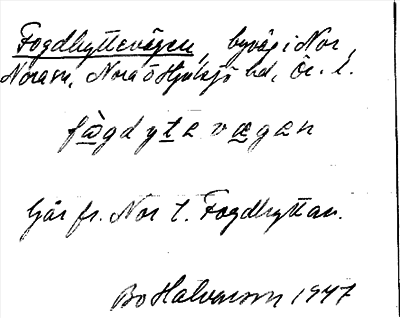 Fogdhyttevägen, byväg i Nor,
Nora sn, Nora o Hjulsjö hd, Ör. l.
fògdytevægen
Går fr. Nor t. Fogdhyttan.
Bo Halvarson 1947